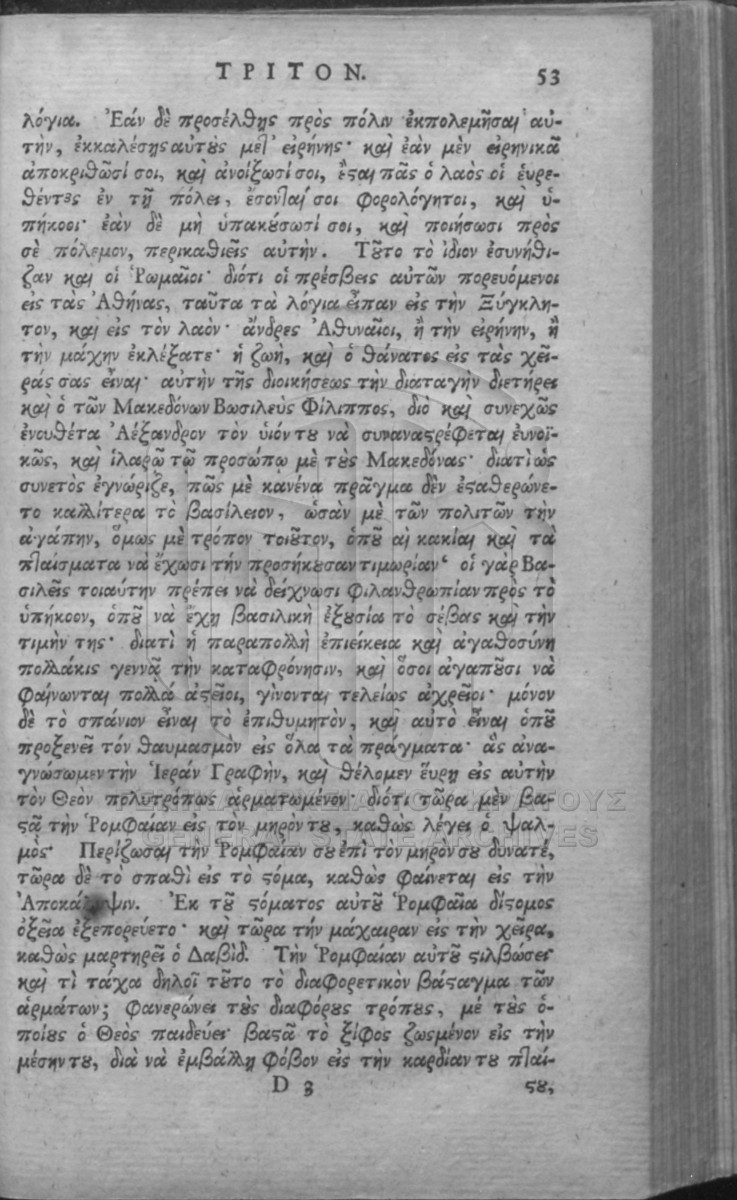 ΤΡΙΤΟΝ. 53
λόγια. Ἐάν δὲ προσέλθῃς πρὸς πόλιν ἐκπολεμῆσαι αὐ-
τὴν, ἐκκαλέσῃς αὐτȣ̀ς μετ' εἰρήνης· καὶ ἐὰν μὲν εἰρηνικᾶ
ἀποκριθῶσί σοι, καὶ ἀνοίξωσί σοι, ἔϛαι πᾶς ὁ λαὸς οἱ ἑυρε-
θέντες ἐν τῇ πόλει, ἔσονταί σοι φορολόγητοι, καὶ ὑ-
πήκοοι· ἐὰν δὲ μὴ ὑπακȣ́σωσί σοι, καὶ ποιήσωσι πρὸς
σὲ πόλεμον, περικαθιεῖς αὐτήν. Τȣ͂το τὸ ἴδιον ἐσυνήθι-
ζαν καὶ οἱ Ῥωμαῖοι· διότι οἱ πρέσβεις αὐτῶν πορευόμενοι
εἰς τὰς Ἀθήνας, ταῦτα τὰ λόγια εἶπαν εἰς τὴν Ξύγκλη-
τον, καὶ εἰς τὸν λαόν· ἄνδρες Ἀθυναῖοι, ἢ τὴν εἰρήνην, ἢ
τὴν μάχην ἐκλέξατε· ἡ ζωὴ, καὶ ὁ θάνατος εἰς τὰς χεῖ-
ράς σας εἶναι· αὐτὴν τῆς διοικήσεως τὴν διαταγὴν διετήρει
καὶ ὁ τῶν Μακεδόνων Βωσιλεὺς Φίλιππος, διὸ καὶ συνεχῶς
ἐνουθέτα Ἀέξανδρον τὸν υἱόν τȣ νὰ συναναϛρέφεται ἐυνοϊ-
κῶς, καὶ ἱλαρῶ τῶ προσώπω μὲ τȣ̀ς Μακεδόνας· διατὶ ὡς
συνετὸς ἐγνώριζε, πῶς μὲ κανένα πρᾶγμα δὲν ἐϛαθερώνε-
το καλλίτερα τὸ βασίλειον, ὡσὰν μὲ τῶν πολιτῶν τὴν
ἀγάπην, ὅμως μὲ τρόπον τοιοῦτον, ὁπȣ͂ αἱ κακίαι καὶ τὰ
πταίσματα νὰ ἔχωσι τήν προσήκȣσαν τιμωρίαν· οἱ γὰρ Βα-
σιλεῖς τοιαύτην πρέπει νὰ δείχνωσι φιλανθρωπίαν πρὸς τὸ
ὑπήκοον, ὁπȣ͂ νὰ ἔχῃ βασιλικὴ ἐξȣσία τὸ σέβας καὶ τὴν
τιμήν της· διατὶ ἡ παραπολλὴ ἐπιείκεια καὶ ἀγαθοσύνη
πολλάκις γεννᾷ τὴν καταφρόνησιν, καὶ ὅσοι ἀγαπȣ͂σι νὰ
φαίνωνται πολλά ἀϛεῖοι, γίνονται τελείως ἀχρεῖοι· μόνον
δὲ τὸ σπάνιον εἶναι τὸ ἐπιθυμητὸν, καὶ αὐτὸ εἶναι ὁπȣ͂
προξενεῖ τόν θαυμασμὸν εἰς ὅλα τὰ πράγματα· ἂς ἀνα-
γνώσωμεν τὴν Ἱεράν Γραφὴν, καὶ θέλομεν ἕυρῃ εἰς αὐτὴν
τὸν Θεὸν πολυτρόπως ἁρματωμένον· διότι τῶρα μὲν βα-
ϛᾶ τὴν Ῥομφαίαν εἰς τὸν μηρὸν τȣ, καθὼς λέγει ὁ ψαλ-
μός· Περίζωσαι τὴν Ῥομφαίαν σȣ ἐπὶ τὸν μηρόν σȣ δυνατέ,
τῶρα δὲ τὸ σπαθὶ εἰς τὸ ϛόμα, καθὼς φαίνεται εἰς τὴν
Ἀποκάλυψιν. Ἐκ τȣ͂ ϛόματος αὐτȣ͂ Ῥομφαῖα δίϛομος
ὀξεῖα ἐξεπορεύετο· καὶ τῶρα τήν μάχαιραν εἰς τὴν χεῖρα,
καθὼς μαρτηρεῖ ὁ Δαβὶδ. Τὴν Ῥομφαίαν αὐτȣ͂ ϛιλβώσει
καὶ τὶ τάχα δηλοῖ τȣ͂το τὸ διαφορετικὸν βάϛαγμα τῶν
ἁρμάτων; φανερώνει τȣ̀ς διαφόρȣς τρόπȣς, μέ τȣ̀ς ὁ-
ποίȣς ὁ Θεὸς παιδεύει· βαϛᾶ τὸ ξίφος ζωσμένον εἰς τὴν
μέσην τȣ, διὰ νὰ ἐμβάλλῃ φόβον εἰς τὴν καρδίαν τȣ πταί-
D 3 ϛȣ,
ΓΕΝΙΚΑ ΑΡΧΕΙΑ ΤΟΥ ΚΡΑΤΟΥΣ
GENERAL STATE ARCHIVES